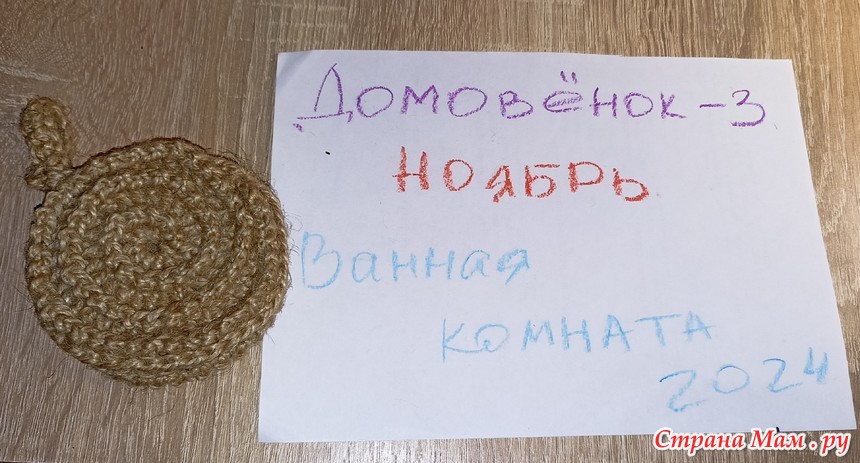 Домовёнок-3
Ноябрь
Ванная
комната
2024
Страна Мам.ру